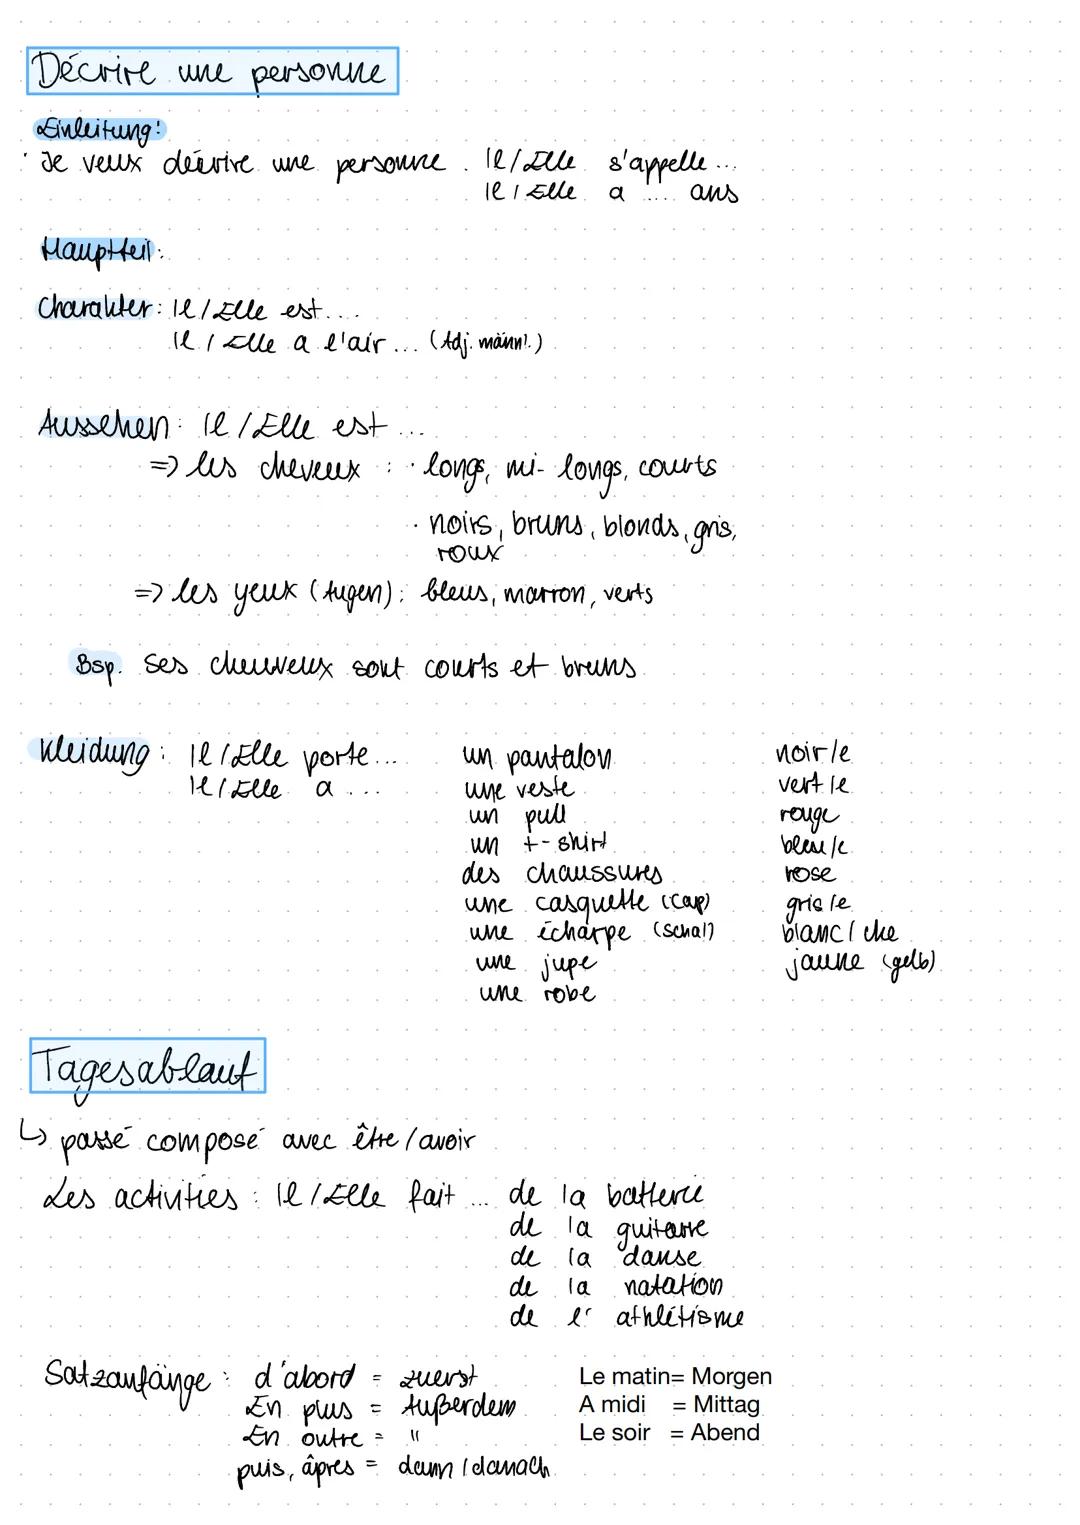 Décrire une personne
Einleitung:
· Je veux décrire une personne. Il/Elle s'appelle...
Il/Elle a .... ans
Hauptteil:
Charakter: Il/Elle est....
Il/Elle a l'air... (Adj. männl.)
Aussehen: Il/Elle est ...
=> les cheveux : · longs, mi-longs, courts
· noirs, bruns, blonds, gris,
roux
=> les yeux (Augen): bleus, marron, verts
Bsp. Ses cheuveux sont courts et bruns
Kleidung: Il/Elle porte... un pantalon noir/e
Il/Elle a ... une veste vert/e
un pull rouge
un t-shirt bleu/e
des chaussures rose
une casquette (Cap) gris/e
une écharpe (Schal) blanc/che
une jupe jaune (gelb)
une robe
Tagesablauf
↳ passé composé avec être/avoir
Les activities: Il/Elle fait ... de la batterie
de la guitarre
de la danse
de la natation
de l' athlétisme
Satzanfänge: d'abord = zuerst Le matin= Morgen
En plus = Außerdem A midi = Mittag
En outre = " Le soir = Abend
puis, âpres = dann/danach